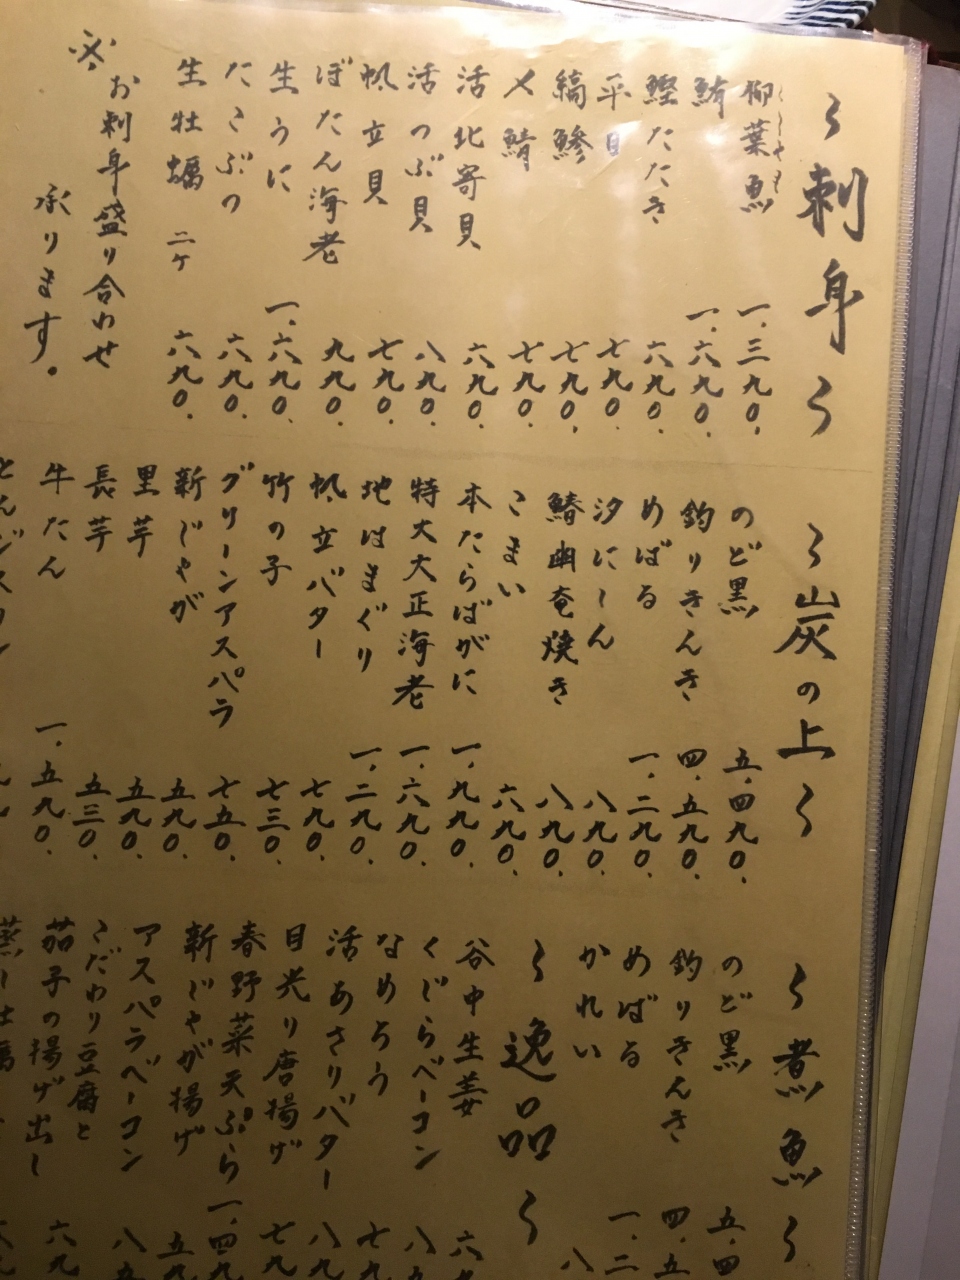 〜刺身〜
柳葉魚 一、三九〇、
ししゃも
鮪 一、六九〇、
鰹たたき 六九〇、
平目 七九〇、
縞鯵 七九〇、
〆鯖 七九〇、
活北寄貝 六九〇、
活つぶ貝 八九〇、
帆立貝 七九〇、
ぼたん海老 九九〇、
生うに 一、六九〇、
たこぶつ 六九〇、
生牡蠣 二ケ 六九〇、
※お刺身盛り合わせ
承ります。
〜炭の上〜
のど黒 五、四九〇、
釣りきんき 四、五九〇、
めばる 一、二九〇、
汐にしん 八九〇、
鰆幽庵焼き 八九〇、
こまい 六九〇、
本たらばがに 一、九九〇、
特大大正海老 一、六九〇、
地はまぐり 一、二九〇、
帆立バター 七九〇、
竹の子 七三〇、
グリーンアスパラ 七五〇、
新じゃが 五九〇、
里芋 五九〇、
長芋 五三〇、
牛たん 一、五九〇、
〜煮魚〜
のど黒 五、四
釣りきんき 四、五
めばる 一、二
かれい 八
〜逸品〜
谷中生姜 六九
くじらベーコン 八
なめろう 七九
活あさりバター 八九
目光り唐揚げ 七九
春野菜天ぷら 一、四九
新じゃが揚げ 五九
アスパラベーコン 八五
こだわり豆腐と
茄子の揚げ出し 六九